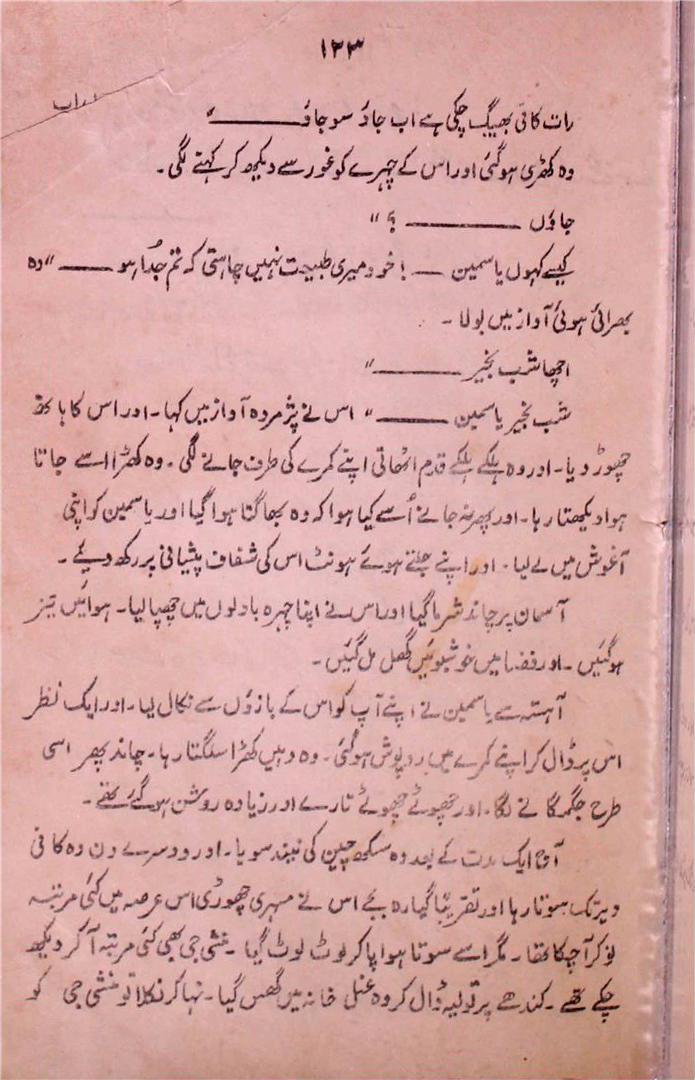 ۱۲۳
رات کافی بھیگ چکی ہے اب جاؤ سو جاؤ ——— “
وہ کھڑی ہو گئی اور اس کے چہرے کو غور سے دیکھ کر کہنے لگی۔
جاؤں ——— ؟ “
کیسے کہوں یاسمین — ! خود میری طبیعت نہیں چاہتی کہ تم جُدا ہو —— “ وہ
بھرائی ہوئی آواز میں بولا۔
اچھا شب بخیر ——— “
شب بخیر یاسمین ——— “ اس نے پژمردہ آواز میں کہا۔ اور اس کا ہاتھ
چھوڑ دیا۔ اور وہ ہلکے ہلکے قدم اٹھاتی اپنے کمرے کی طرف جانے لگی۔ وہ کھڑا اسے جاتا
ہوا دیکھتا رہا۔ اور پھر نہ جانے اُسے کیا ہوا کہ وہ بھاگتا ہوا گیا اور یاسمین کو اپنی
آغوش میں لے لیا۔ اور اپنے جلتے ہوئے ہونٹ اس کی شفاف پیشانی پر رکھ دیئے۔
آسمان پر چاند شرما گیا اور اس نے اپنا چہرہ بادلوں میں چھپا لیا۔ ہوائیں تیز
ہو گئیں۔ اور فضا میں خوشبوئیں گھل مل گئیں۔
آہستہ سے یاسمین نے اپنے آپ کو اس کے بازوؤں سے نکال لیا۔ اور ایک نظر
اس پر ڈال کر اپنے کمرے میں روپوش ہو گئی۔ وہ وہیں کھڑا سلگتا رہا۔ چاند پھر اسی
طرح جگمگانے لگا۔ اور چھوٹے چھوٹے تارے اور زیادہ روشن ہو گئے تھے۔
آج ایک مدت کے بعد وہ سکھ چین کی نیند سویا۔ اور دوسرے دن وہ کافی
دیر تک سوتا رہا اور تقریباً گیارہ بجے اس نے مسہری چھوڑی اس عرصہ میں کئی مرتبہ
نوکر آ چکا تھا۔ مگر اسے سوتا ہوا پا کر لوٹ لوٹ گیا۔ منشی جی بھی کئی مرتبہ آ کر دیکھ
چکے تھے۔ کندھے پر تولیہ ڈال کر وہ غسل خانہ میں گھس گیا۔ نہا کر نکلا تو منشی جی کو